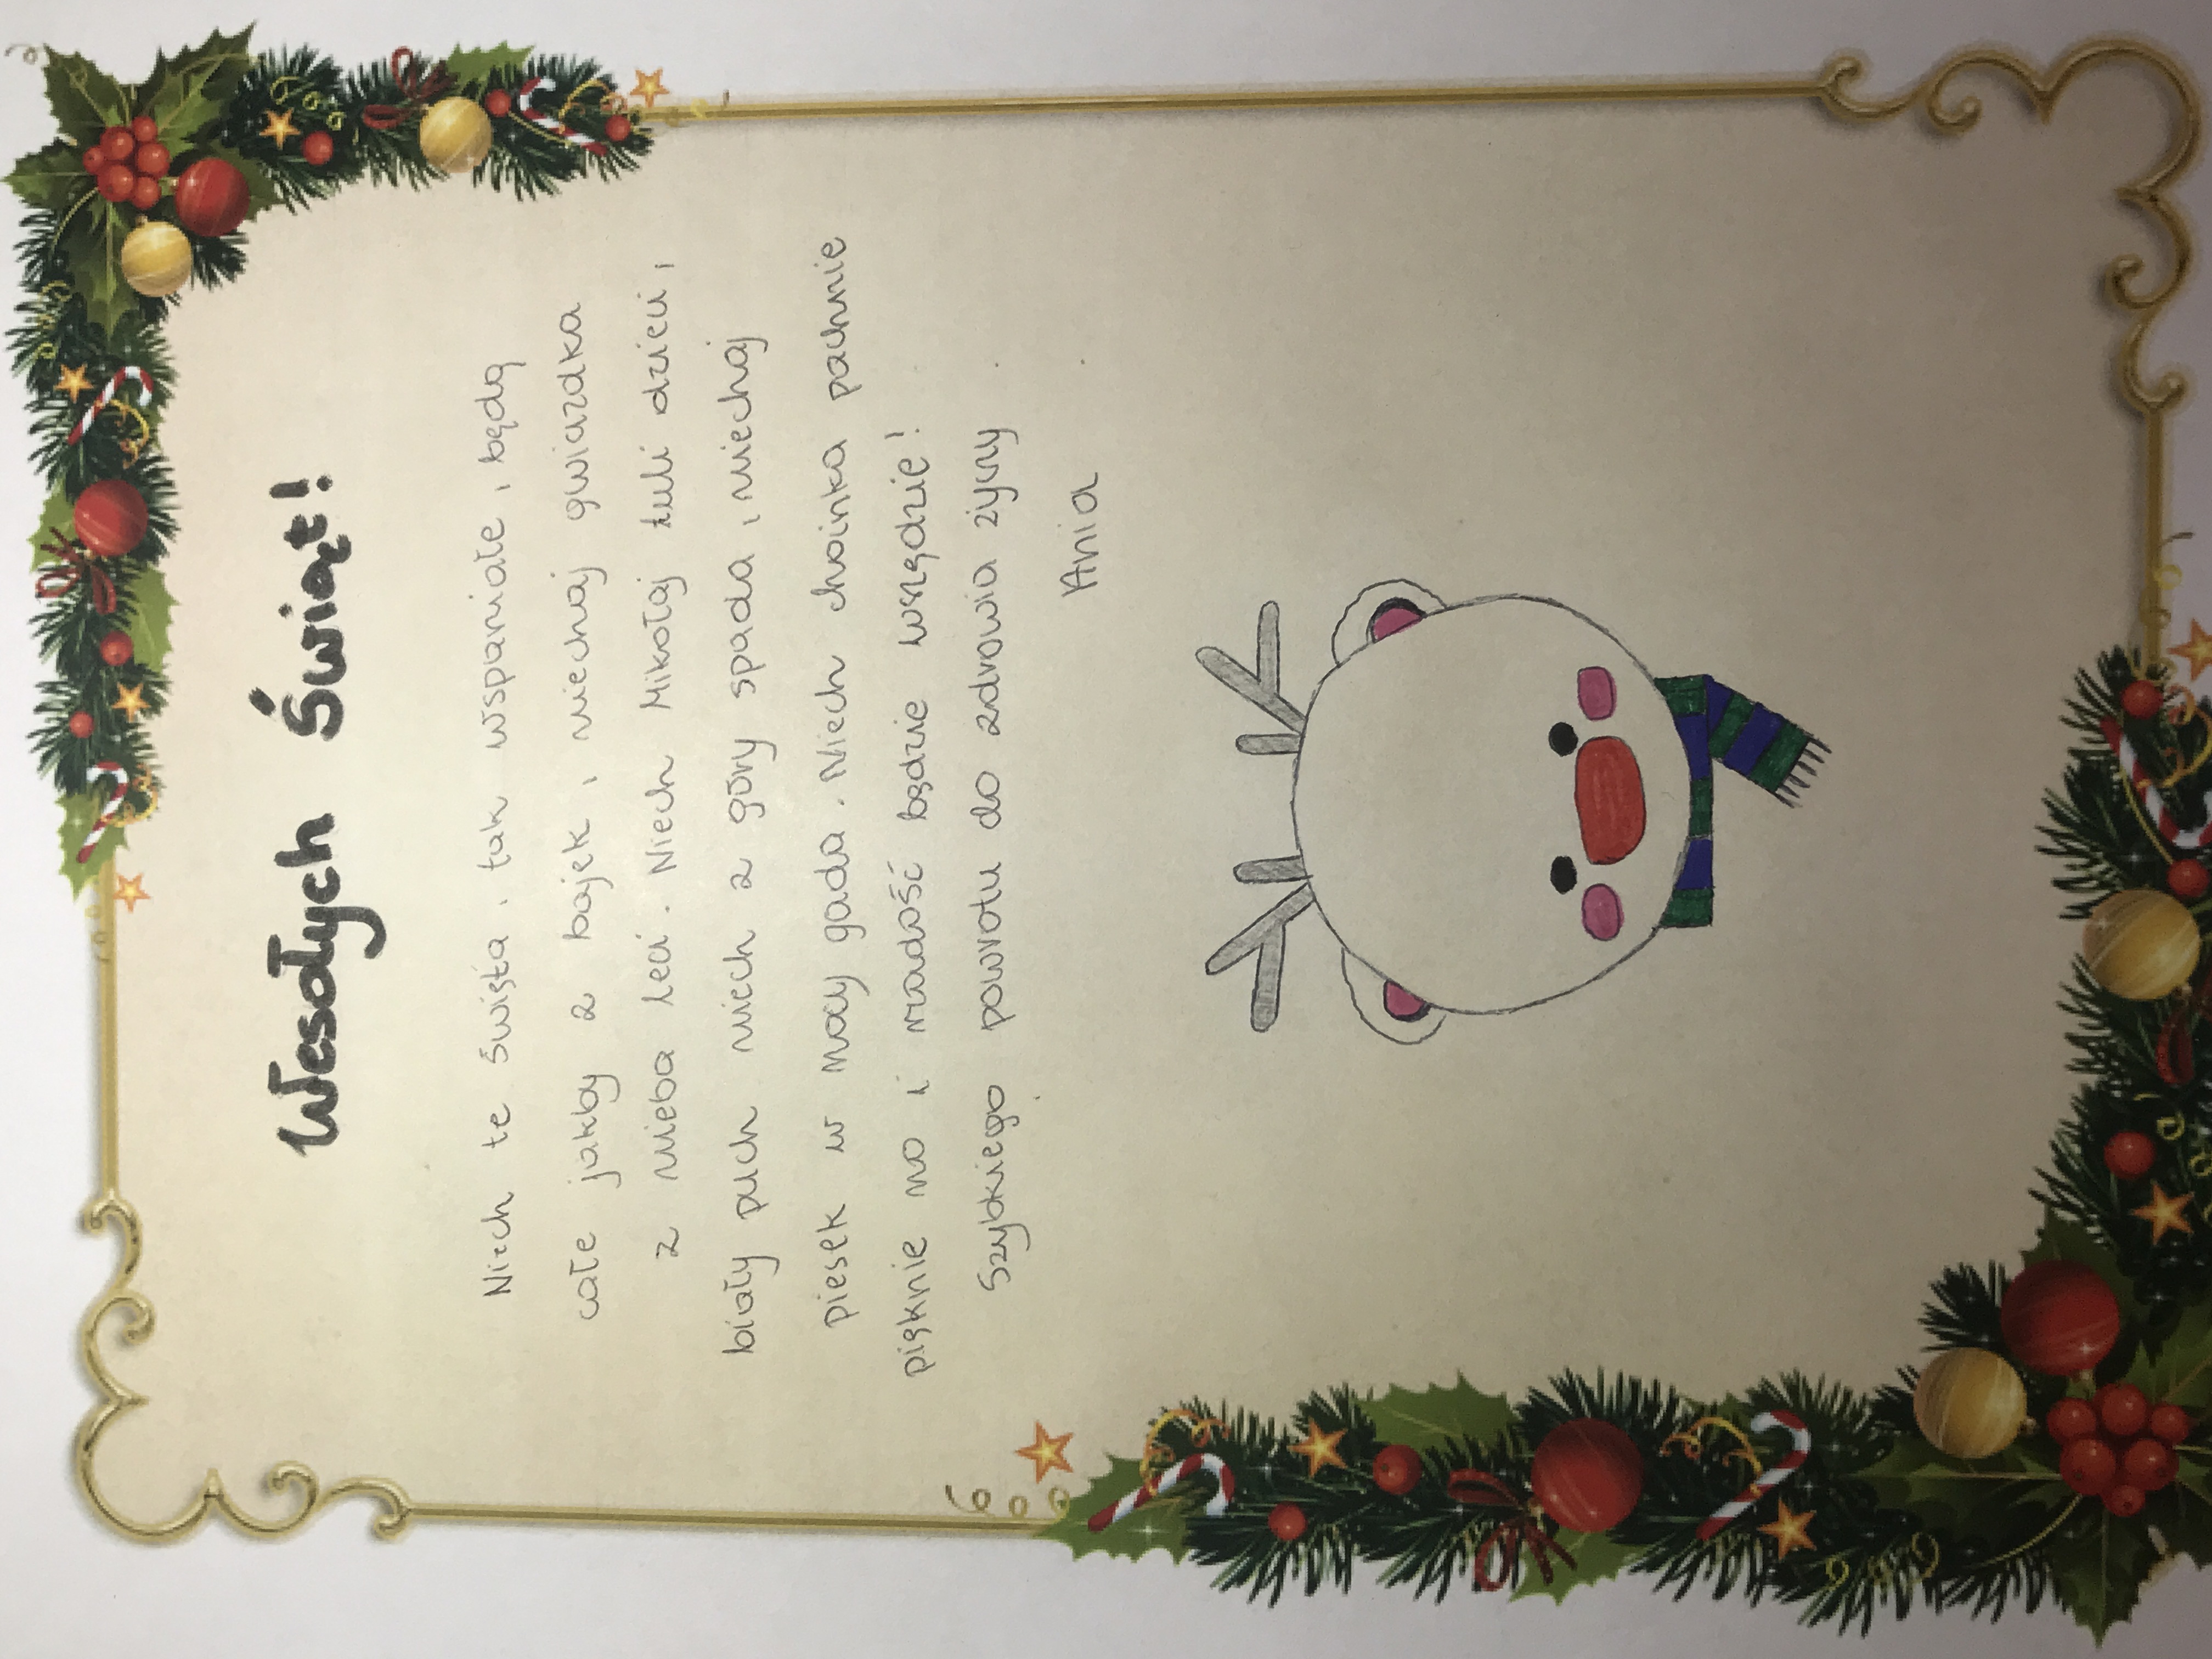 Wesołych Świąt!
Niech te Święta, tak wspaniałe, będą
całe jakby z bajek, niechaj gwiazdka
z nieba leci. Niech Mikołaj tuli dzieci,
biały puch niech z góry spada, niechaj
piesek w nocy gada. Niech choinka pachnie
pięknie no i radość będzie wszędzie!
Szybkiego powrotu do zdrowia życzy
Ania